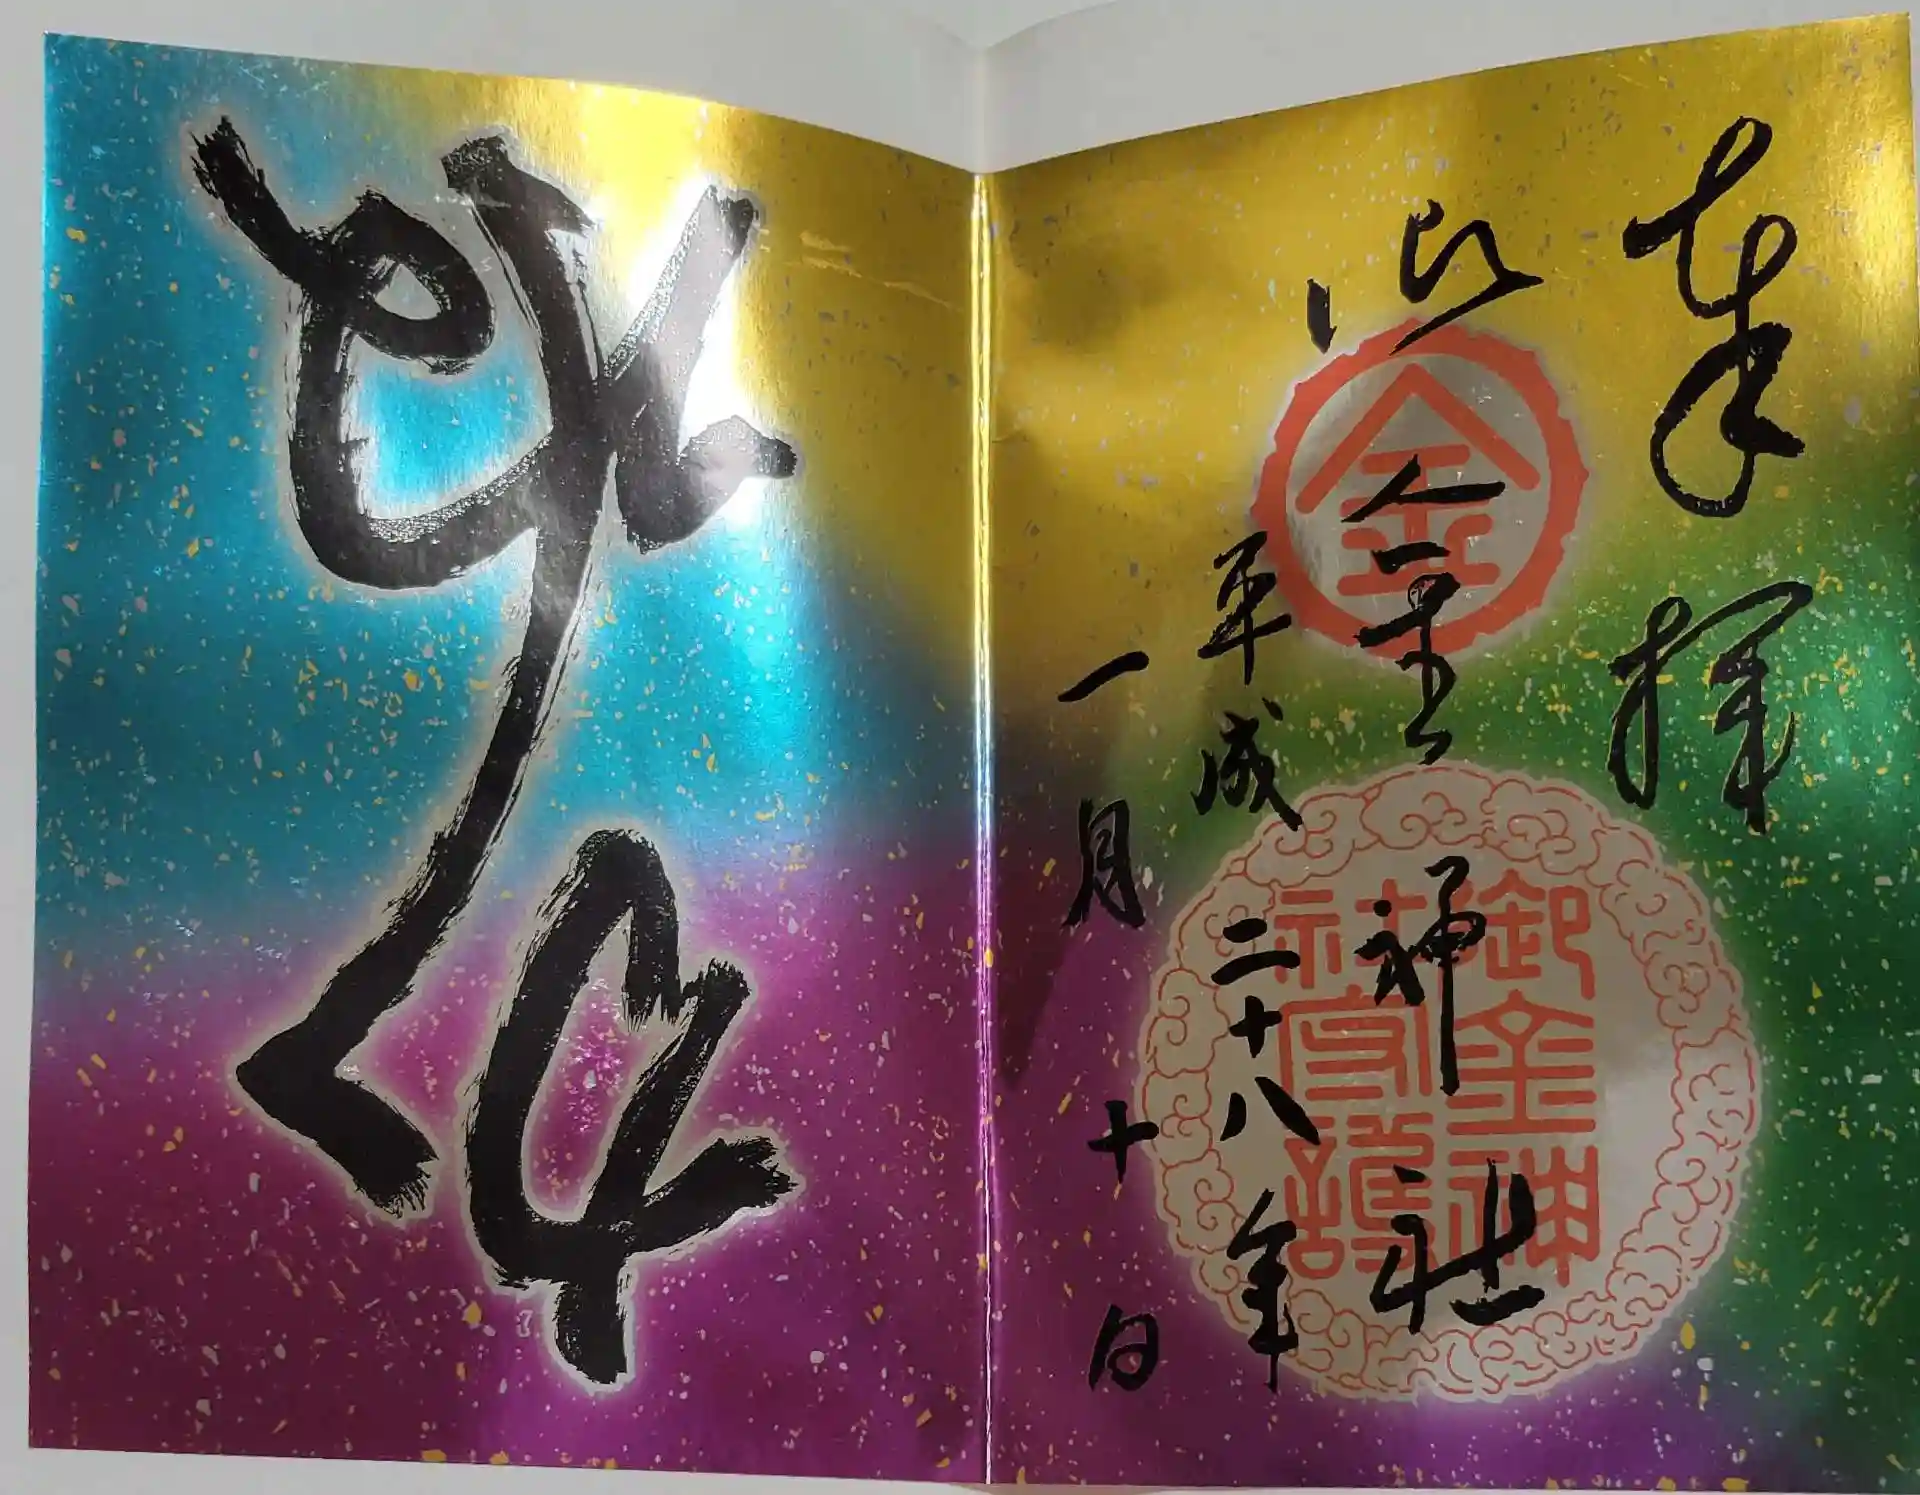 奉拝
御金神社
金
御金神
社守護
平成二十八年
一月十日